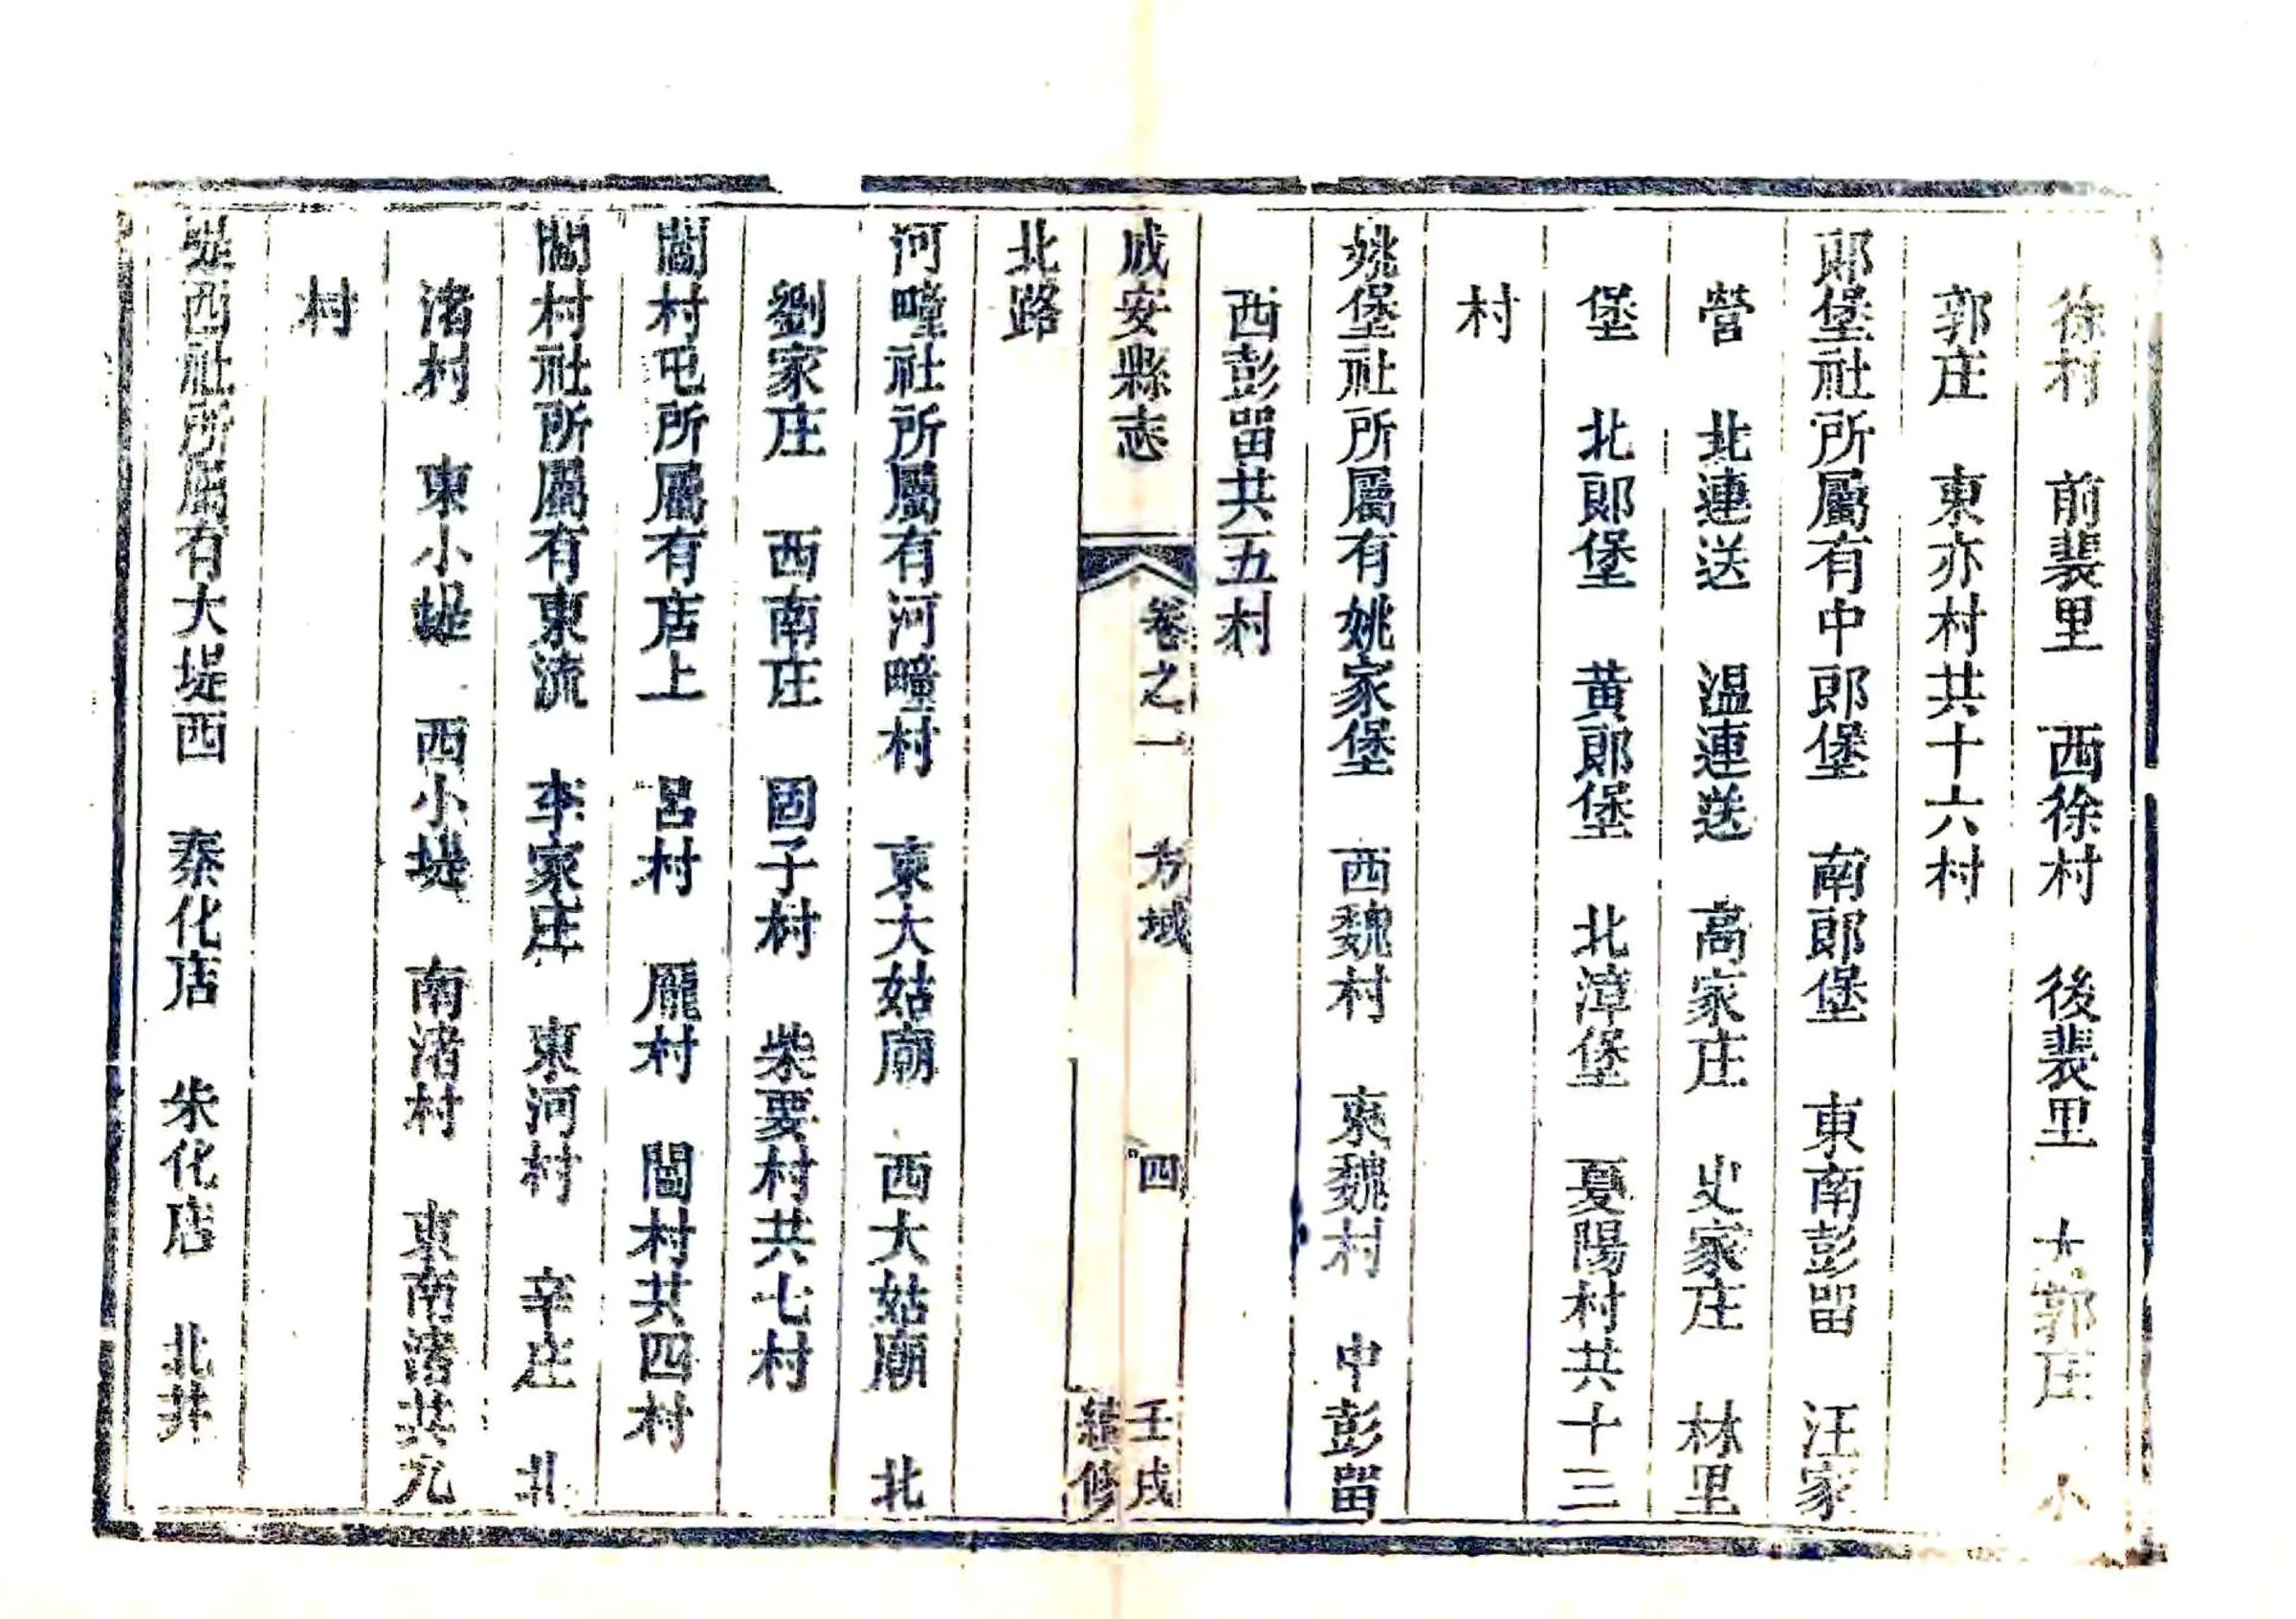 徐村　前裴里　西徐村　後裴里　大郭庄　小
郭庄　東亦村共十六村
郎堡社所屬有中郎堡　南郎堡　東南彭留　汪家
營　北連送　温連送　高家庄　史家庄　林里
堡　北郎堡　黃郎堡　北漳堡　夏陽村共十三
村
姚堡社所屬有姚家堡　西魏村　東魏村　中彭留
西彭留共五村
成安縣志　卷之一　方域　四　壬戌續修
北路
河疃社所屬有河疃村　東大姑廟　西大姑廟　北
劉家庄　西南庄　固子村　柴要村共七村
閻村屯所屬有店上　呂村　龐村　閻村共四村
閻村社所屬有東流　李家庄　東河村　辛庄　北
渚村　東小堤　西小堤　南渚村　東南渚共九
村
堤西社所屬有大堤西　秦化店　朱化店　北井